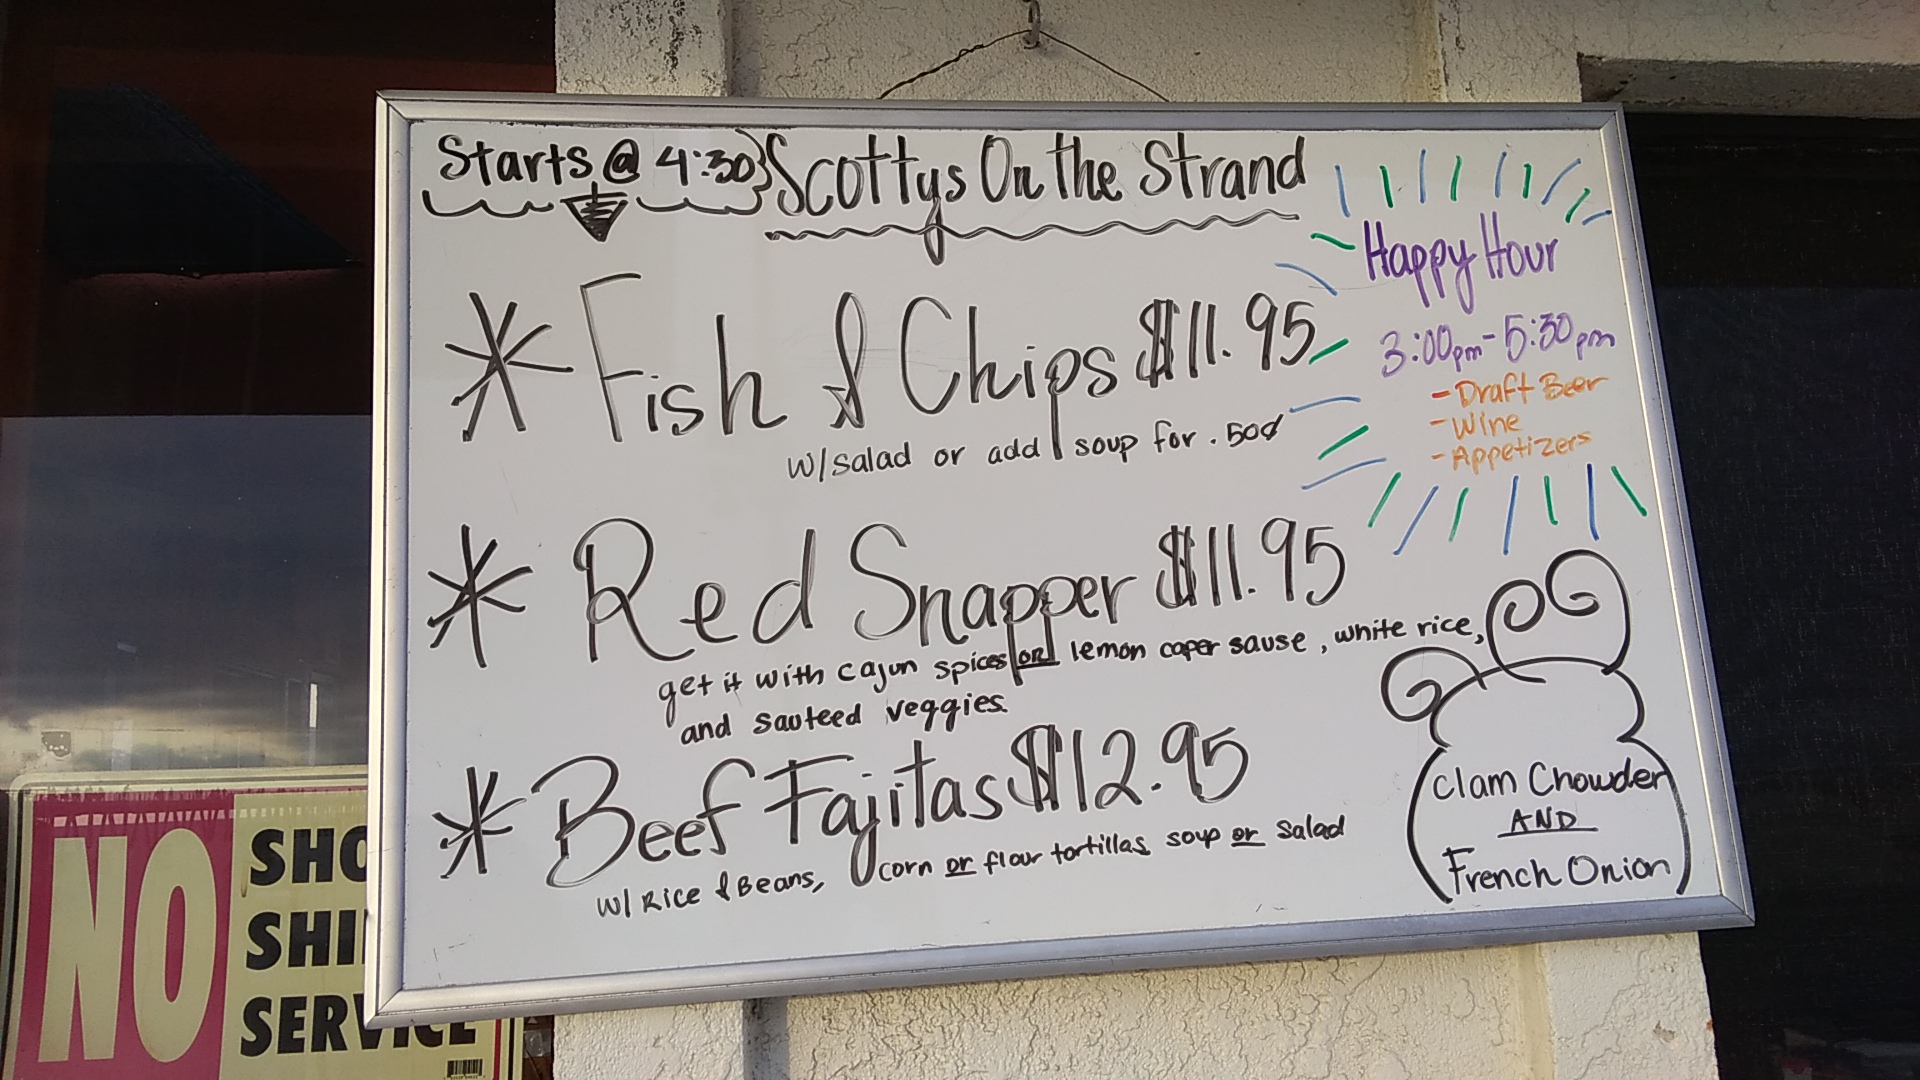 Starts @ 4:30
Scottys On the Strand
Happy Hour
3:00pm - 5:30pm
- Draft Beer
- Wine
- Appetizers
* Fish & Chips $11.95
w/salad or add soup for .50¢
* Red Snapper $11.95
get it with cajun spices or lemon caper sause, white rice,
and sauteed veggies.
* Beef Fajitas $12.95
w/ Rice & Beans, corn or flour tortillas soup or salad
Clam Chowder
AND
French Onion
NO
SHO
SHI
SERVICE